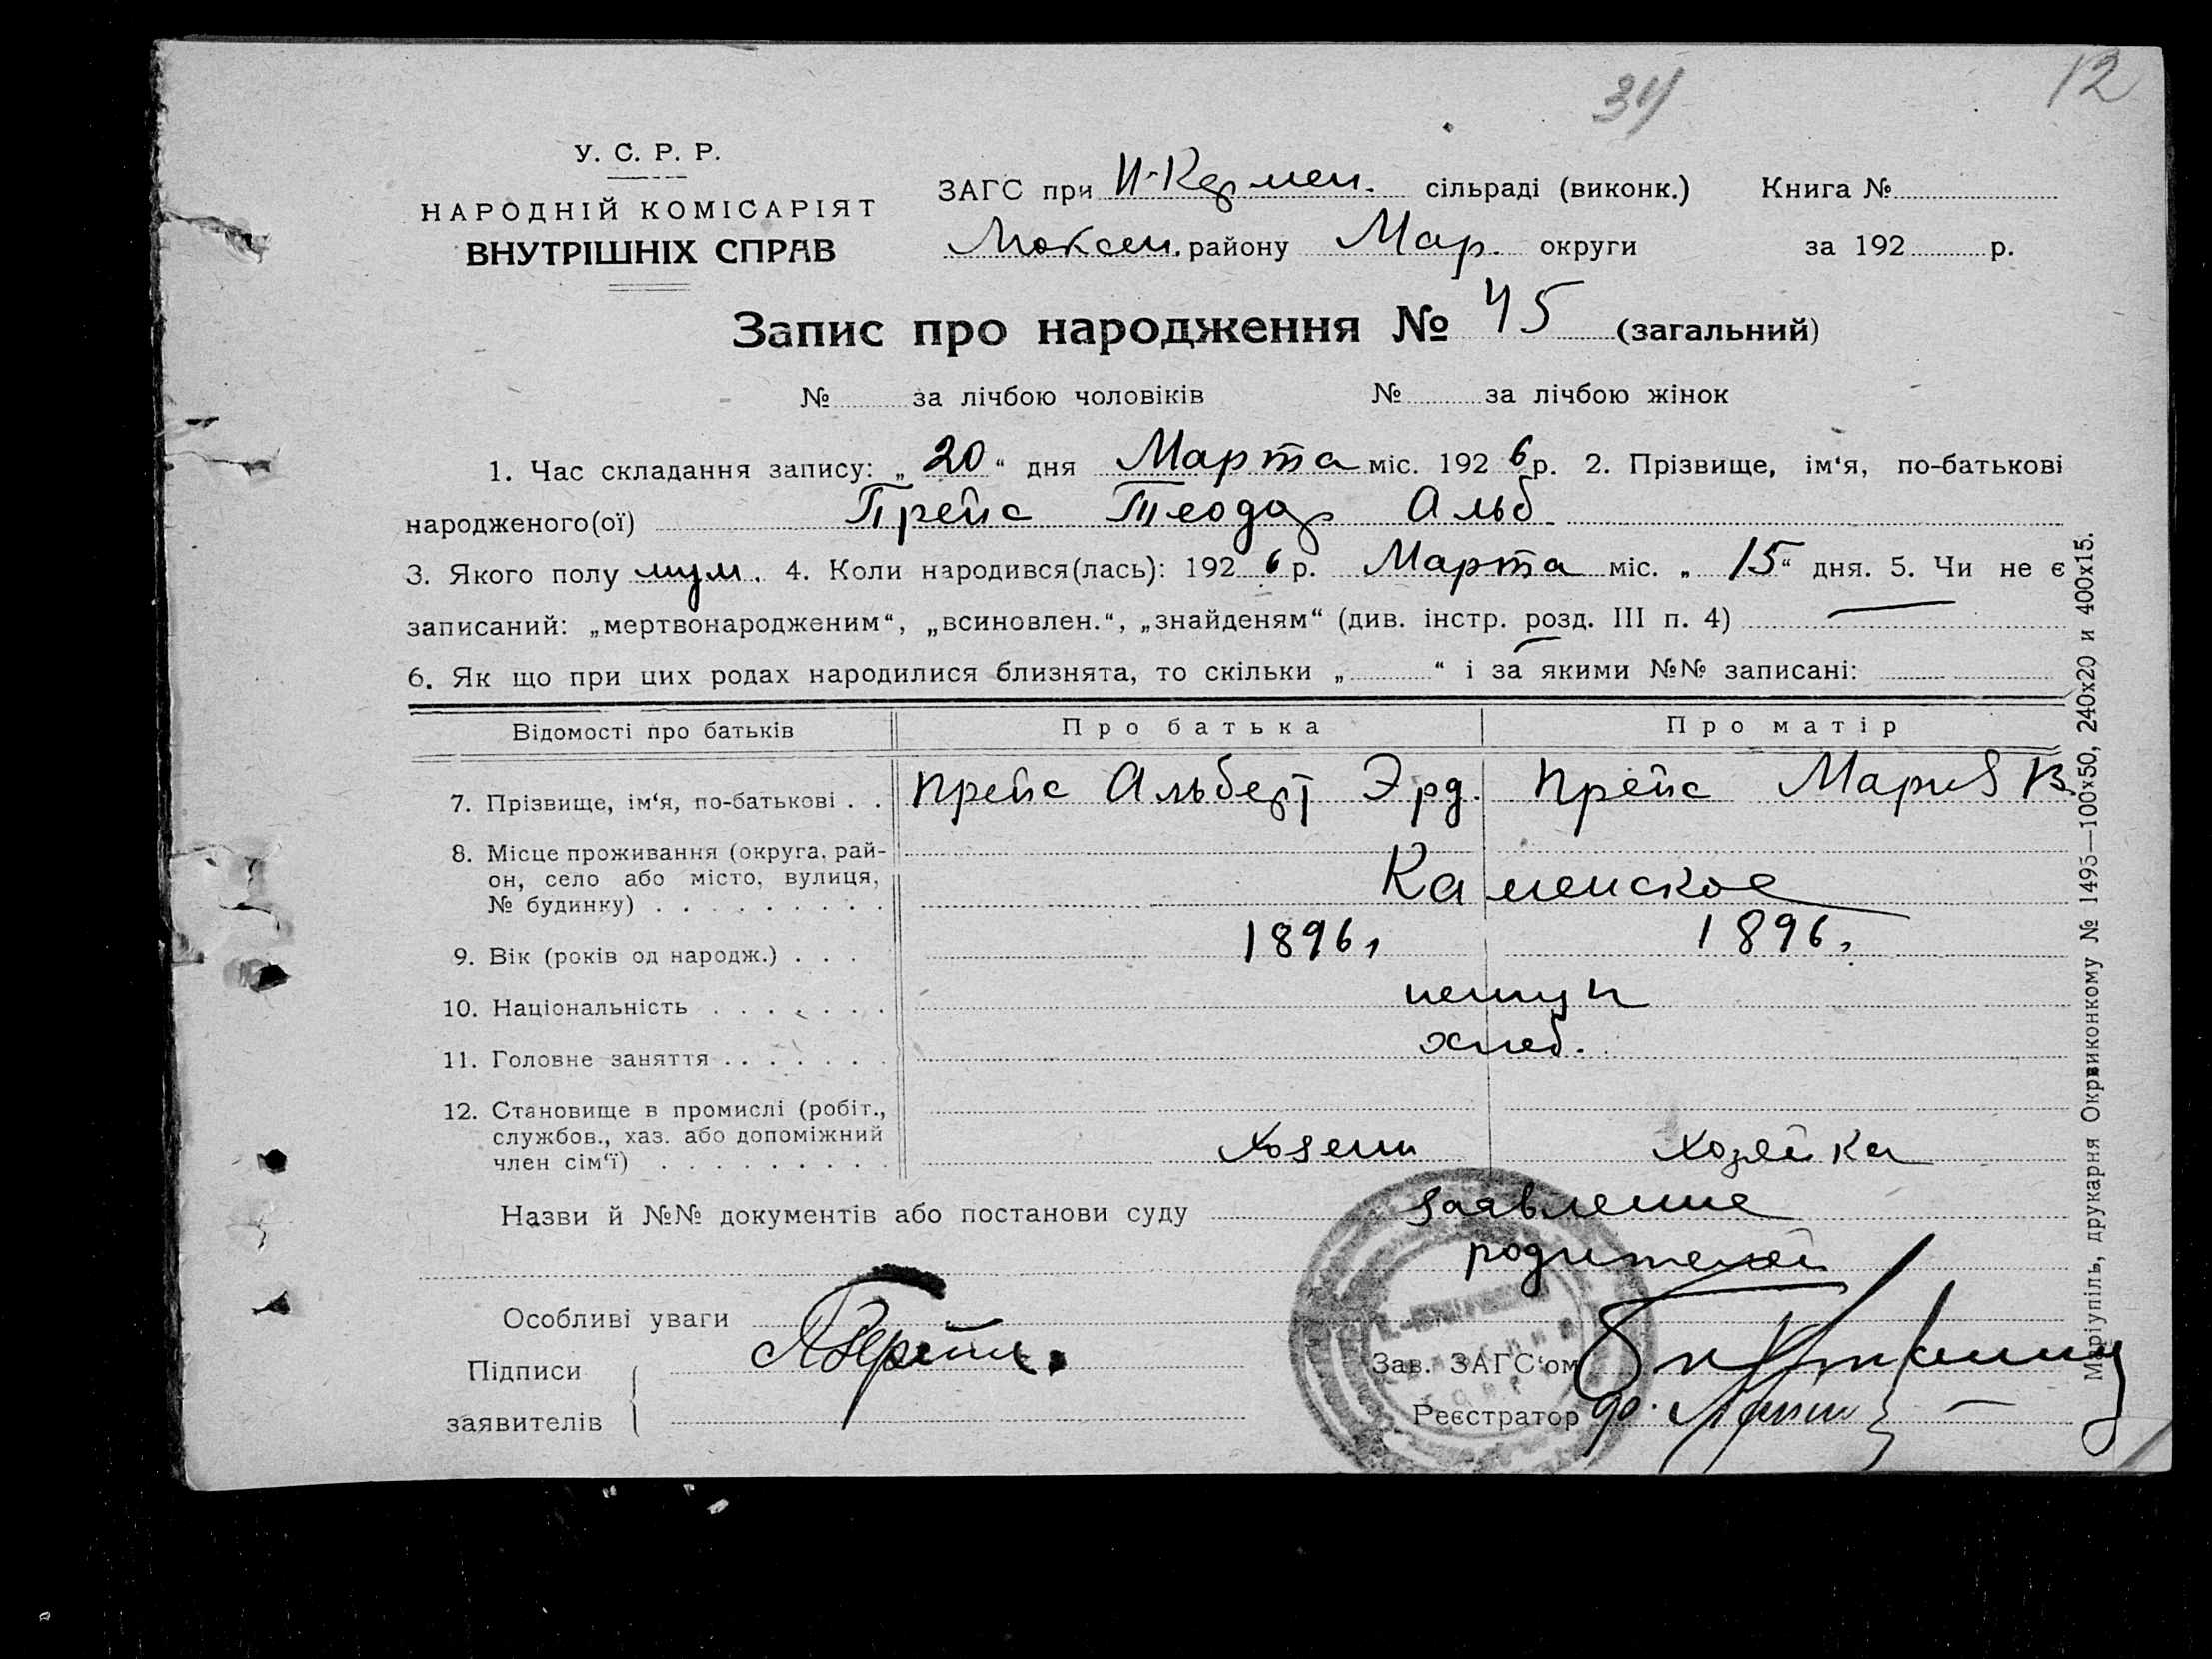 34 12
У. С. Р. Р.
НАРОДНІЙ КОМІСАРІЯТ
ВНУТРІШНІХ СПРАВ
ЗАГС при И-Кермен. сільраді (виконк.) Книга №
району Мар. округи за 192 р.
Запис про народження № 45 (загальний)
№ за лічбою чоловіків № за лічбою жінок
1. Час складання запису: „20“ дня Марта міс. 1926 р. 2. Прізвище, ім‘я, по-батькові
народженого(ої) Прейс Теодор Альб
3. Якого полу муж. 4. Коли народився(лась): 1926 р. Марта міс. „15“ дня. 5. Чи не є
записаний: „мертвонародженим“, „всиновлен.“, „знайденям“ (див. інстр. розд. III п. 4) —
6. Як що при цих родах народилися близнята, то скільки „ “ і за якими №№ записані:
Відомості про батьків Про батька Про матір
7. Прізвище, ім‘я, по-батькові . . Прейс Альберт Эрд. Прейс Мария В.
8. Місце проживання (округа, рай-
он, село або місто, вулиця,
№ будинку) . . . . . . . . . Каменское
9. Вік (років од народж.) . . . 1896, 1896,
10. Національність . . . . . . .
11. Головне заняття . . . . . . . хлеб.
12. Становище в промислі (робіт.,
службов., хаз. або допоміжний
член сім‘ї) . . . . . . . . . хозяин хозяйка
Назви й №№ документів або постанови суду заявление
родителей
Особливі уваги
Підписи
заявителів
Зав. ЗАГС‘ом
Реєстратор
Маріупіль, друкарня Окрвиконкому № 1495—100х50, 240х20 и 400х15.